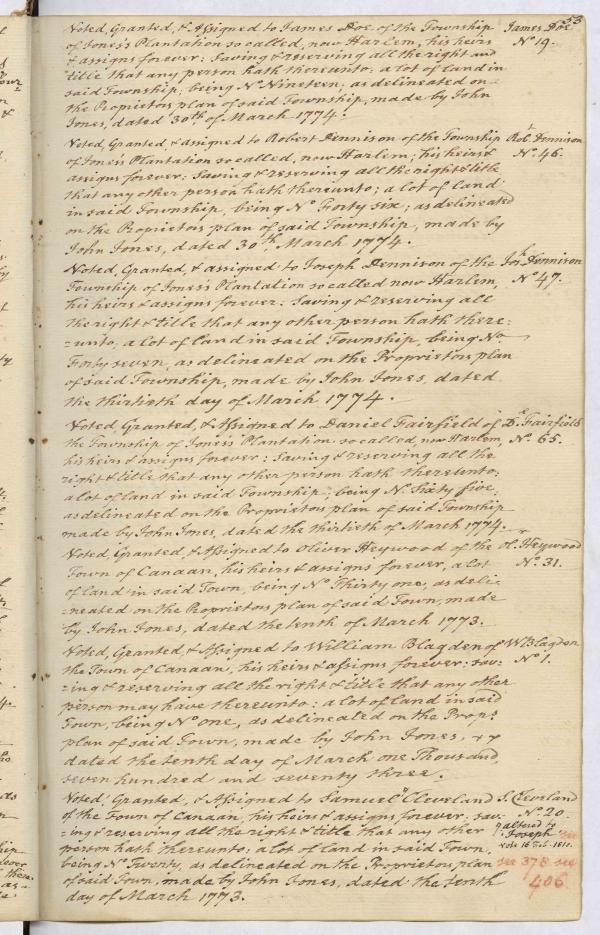 53
Voted, Granted, & Assigned to James Doe of the Township
of Jones's Plantation so called, now Harlem, his heirs
& assigns forever: Saving & reserving all the right and
title that any person hath thereunto; a lot of land in
said Township, being No. Nineteen; as delineated on
the Proprietors plan of said Township, made by John
Jones, dated 30th of March 1774.
James Doe
No. 19.
Voted, Granted, & assigned to Robert Dennison of the Township
of Jones's Plantation so called, now Harlem; his heirs &
assigns forever: Saving & reserving all the right & title
that any other person hath thereunto; a lot of land
in said Township, being No. Forty six; as delineated
on the Proprietors plan of said Township, made by
John Jones, dated 30th. March 1774.
Robt. Dennison
No. 46.
Voted, Granted, & assigned to Joseph Dennison of the
Township of Jones's Plantation so called now Harlem,
his heirs & assigns forever: Saving & reserving all
the right & title that any other person hath there:
=unto; a lot of land in said Township, being No.
Forty seven, as delineated on the Proprietors plan
of said Township, made by John Jones, dated
the thirtieth day of March 1774.
Josh. Dennison
No. 47.
Voted, Granted, & Assigned to Daniel Fairfield of
the Township of Jones's Plantation so called, now Harlem,
his heirs & assigns forever: Saving & reserving all the
right & title that any other person hath thereunto;
a lot of land in said Township; being No. Sixty five,
as delineated on the Proprietors plan of said Township
made by John Jones, dated the thirtieth of March 1774.
Dl. Fairfield
No. 65.
Voted, Granted, & Assigned to Oliver Heywood of the
Town of Canaan, his heirs & assigns forever, a lot
of land in said Town, being No. Thirty one, as deli=
=neated on the Proprietors plan of said Town, made
by John Jones, dated the tenth of March 1773.
Ol. Heywood
No. 31.
Voted, Granted, & Assigned to William Blagden of
the Town of Canaan, his heirs & assigns forever: sav=
=ing & reserving all the right & title that any other
person may have thereunto: a lot of land in said
Town, being No. one, as delineated on the Props.
plan of said Town, made by John Jones, &
dated the tenth day of March one Thousand,
seven hundred and seventy three.
W Blagden
No. 1.
Voted, Granted, & Assigned to Samuel Cleveland
of the Town of Canaan, his heirs & assigns forever: sav=
=ing & reserving all the right & title that any other
person hath thereunto: a lot of land in said Town,
being No. Twenty, as delineated on the Proprietors plan
of said Town, made by John Jones, dated the tenth
day of March 1773.
S. Cleveland
No. 20
altered to
Joseph
vote 16 Feb. 1810.
see 378 see
406